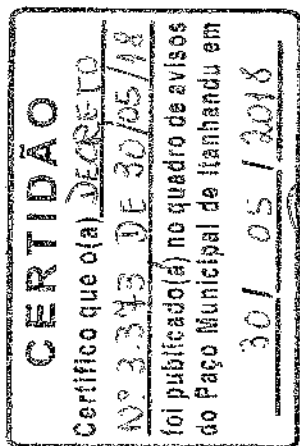 CERTIDÃO
Certifico que o(a) DECRETO
Nº 3.373 DE 30/05/18
foi publicado(a) no quadro de avisos
do Paço Municipal de Itanhandu em
30 / 05 / 2018